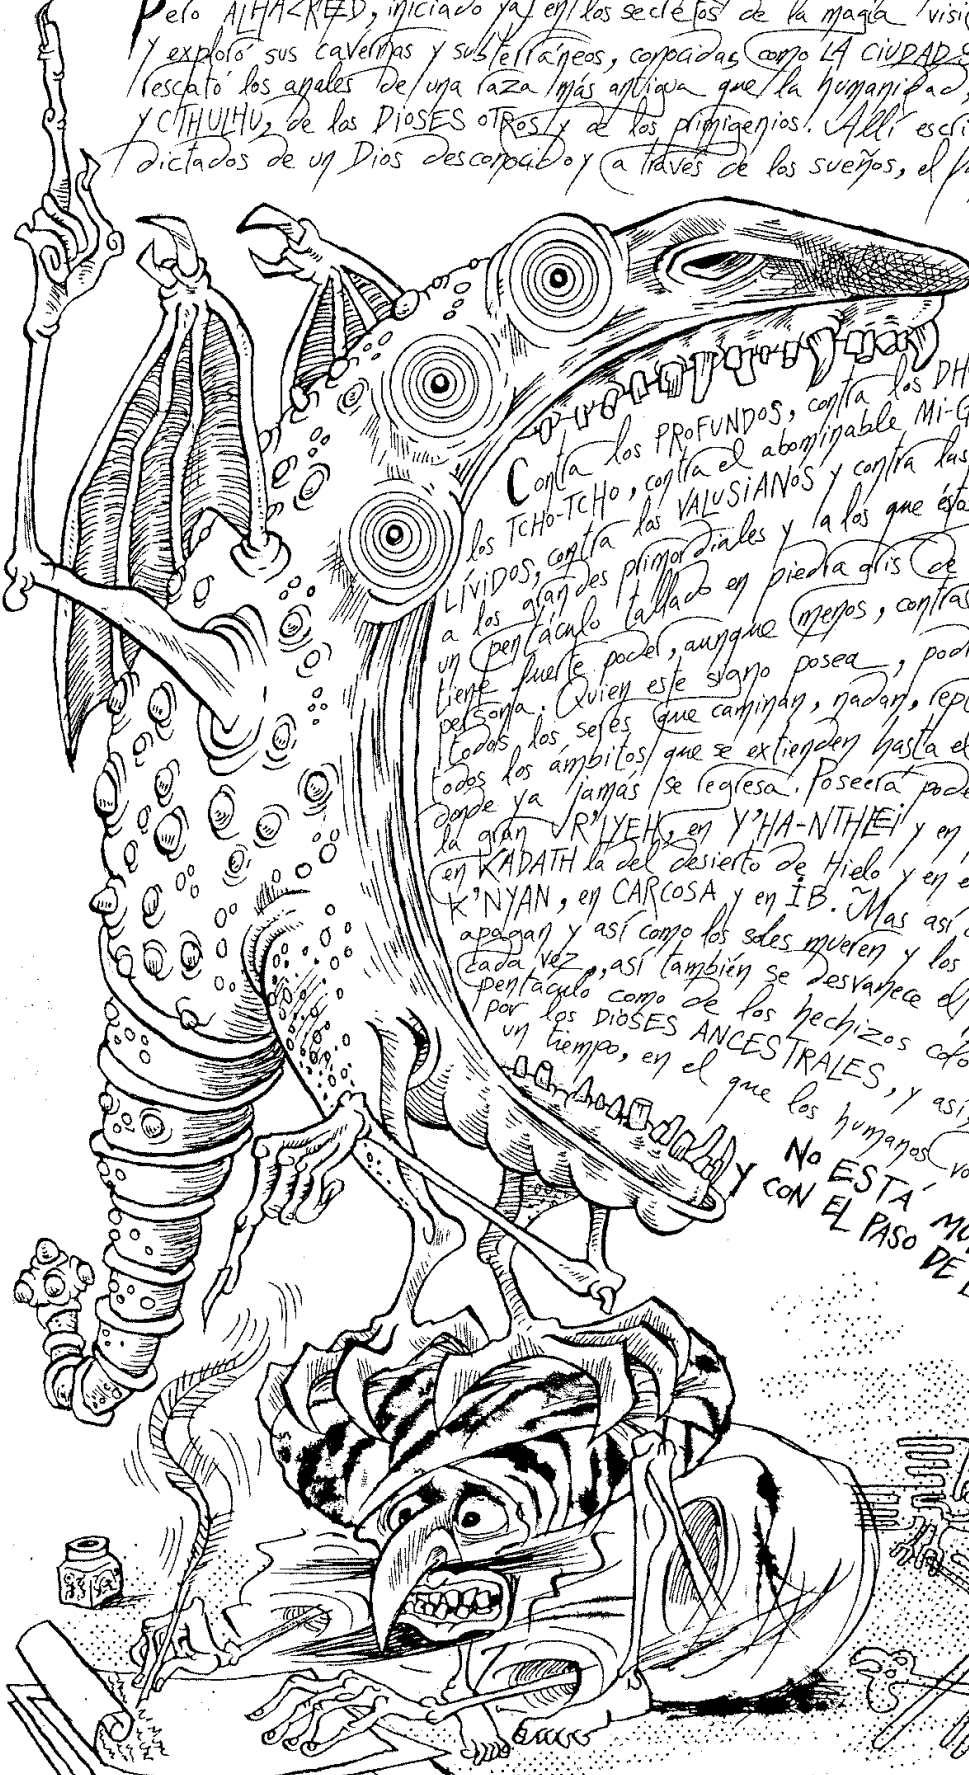 Pero ALHAZRED, iniciado ya en los secretos de la magia visi
y exploró sus cavernas y subterráneos, conocidas como LA CIUDAD S
rescató los anales de una raza más antigua que la humanidad,
y CTHULHU, de los DIOSES OTROS y de los primigenios. Allí escri
dictados de un Dios desconocido y a través de los sueños, el
Contra los PROFUNDOS, contra los DH
los TCHO-TCHO, contra el abominable Mi-G
LÍVIDOS, contra los VALUSIANOS y contra las
a los grandes primordiales y a los que ésto
un pentáculo tallado en piedra gris de
tiene fuerte poder, aunque menos, contra
persona. Quien este signo posea, podr
todos los seres que caminan, nadan, rep
todos los ámbitos que se extienden hasta el
donde ya jamás se regresa. Poseerá pode
la gran R'LYEH, en Y'HA-NTHLEI y en
en KADATH la del desierto de Hielo y en e
K'NYAN, en CARCOSA y en IB. Mas así
apagan y así como los soles mueren y los
cada vez, así también se desvanece el
pentáculo como de los hechizos colo
por los DIOSES ANCESTRALES, y asi
un tiempo, en el que los humanos vo
NO ESTÁ MU
Y CON EL PASO DE